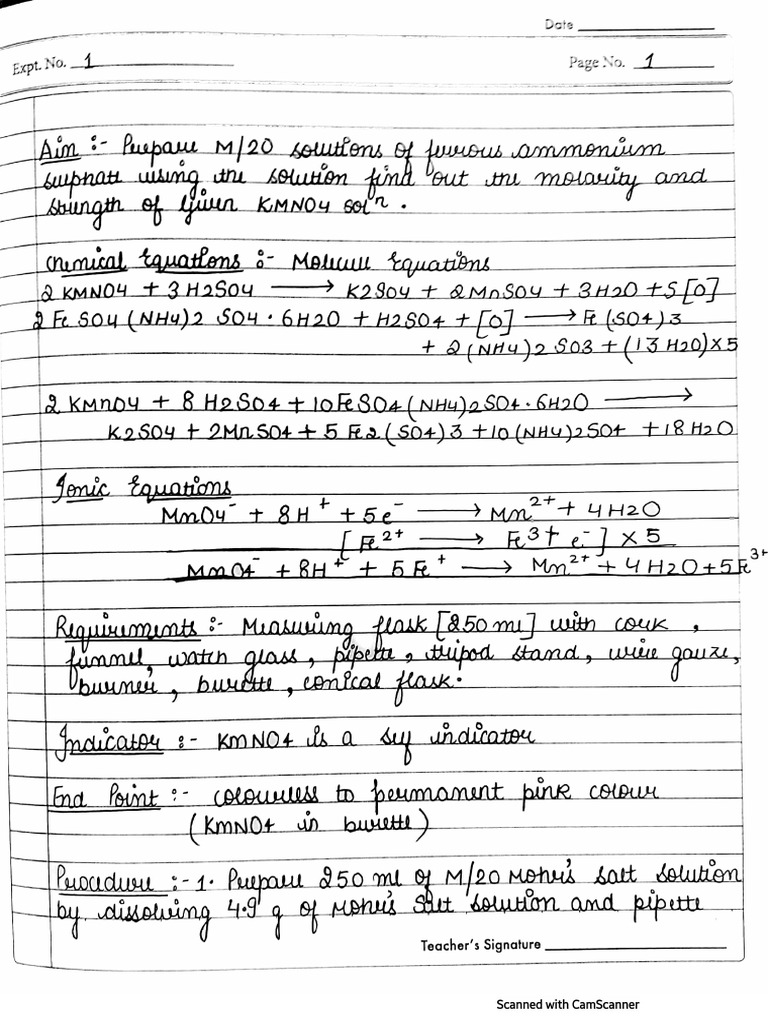 Date
Expt. No. 1
Page No. 1
Aim :- Prepare M/20 solutions of ferrous ammonium
sulphate using the solution find out the molarity and
strength of given KMNO4 solⁿ.
Chemical Equations :- Molecule Equations
2 KMNO4 + 3H2SO4 ⟶ K2SO4 + 2MnSO4 + 3H2O + 5[O]
2 Fe SO4 (NH4)2 SO4 · 6H2O + H2SO4 + [O] ⟶ Fe (SO4)3
+ 2(NH4)2 SO3 + (13 H2O) X5
2 KMnO4 + 8 H2SO4 + 10FeSO4(NH4)2SO4·6H2O ⟶
K2SO4 + 2MnSO4 + 5 Fe2 (SO4)3 +10(NH4)2SO4 +18H2O
Ionic Equations
MnO4⁻ + 8H⁺ + 5e⁻ ⟶ Mn²⁺ + 4H2O
[Fe²⁺ ⟶ Fe³⁺ e⁻] X 5
MnO4⁻ + 8H⁺ + 5Fe⁺ ⟶ Mn²⁺ + 4H2O + 5Fe³⁺
Requirements :- Measuring flask [250 ml] with cork ,
funnel, watch glass , pipette , tripod stand , wire gauze,
burner , burette , conical flask.
Indicator :- KMNO4 is a self indicator
End Point :- colourless to permanent pink colour
(KMNO4 in burette)
Procedure :- 1. Prepare 250 ml of M/20 Mohr's salt solution
by dissolving 4.9 g of Mohr's salt solution and pipette
Teacher's Signature
Scanned with CamScanner